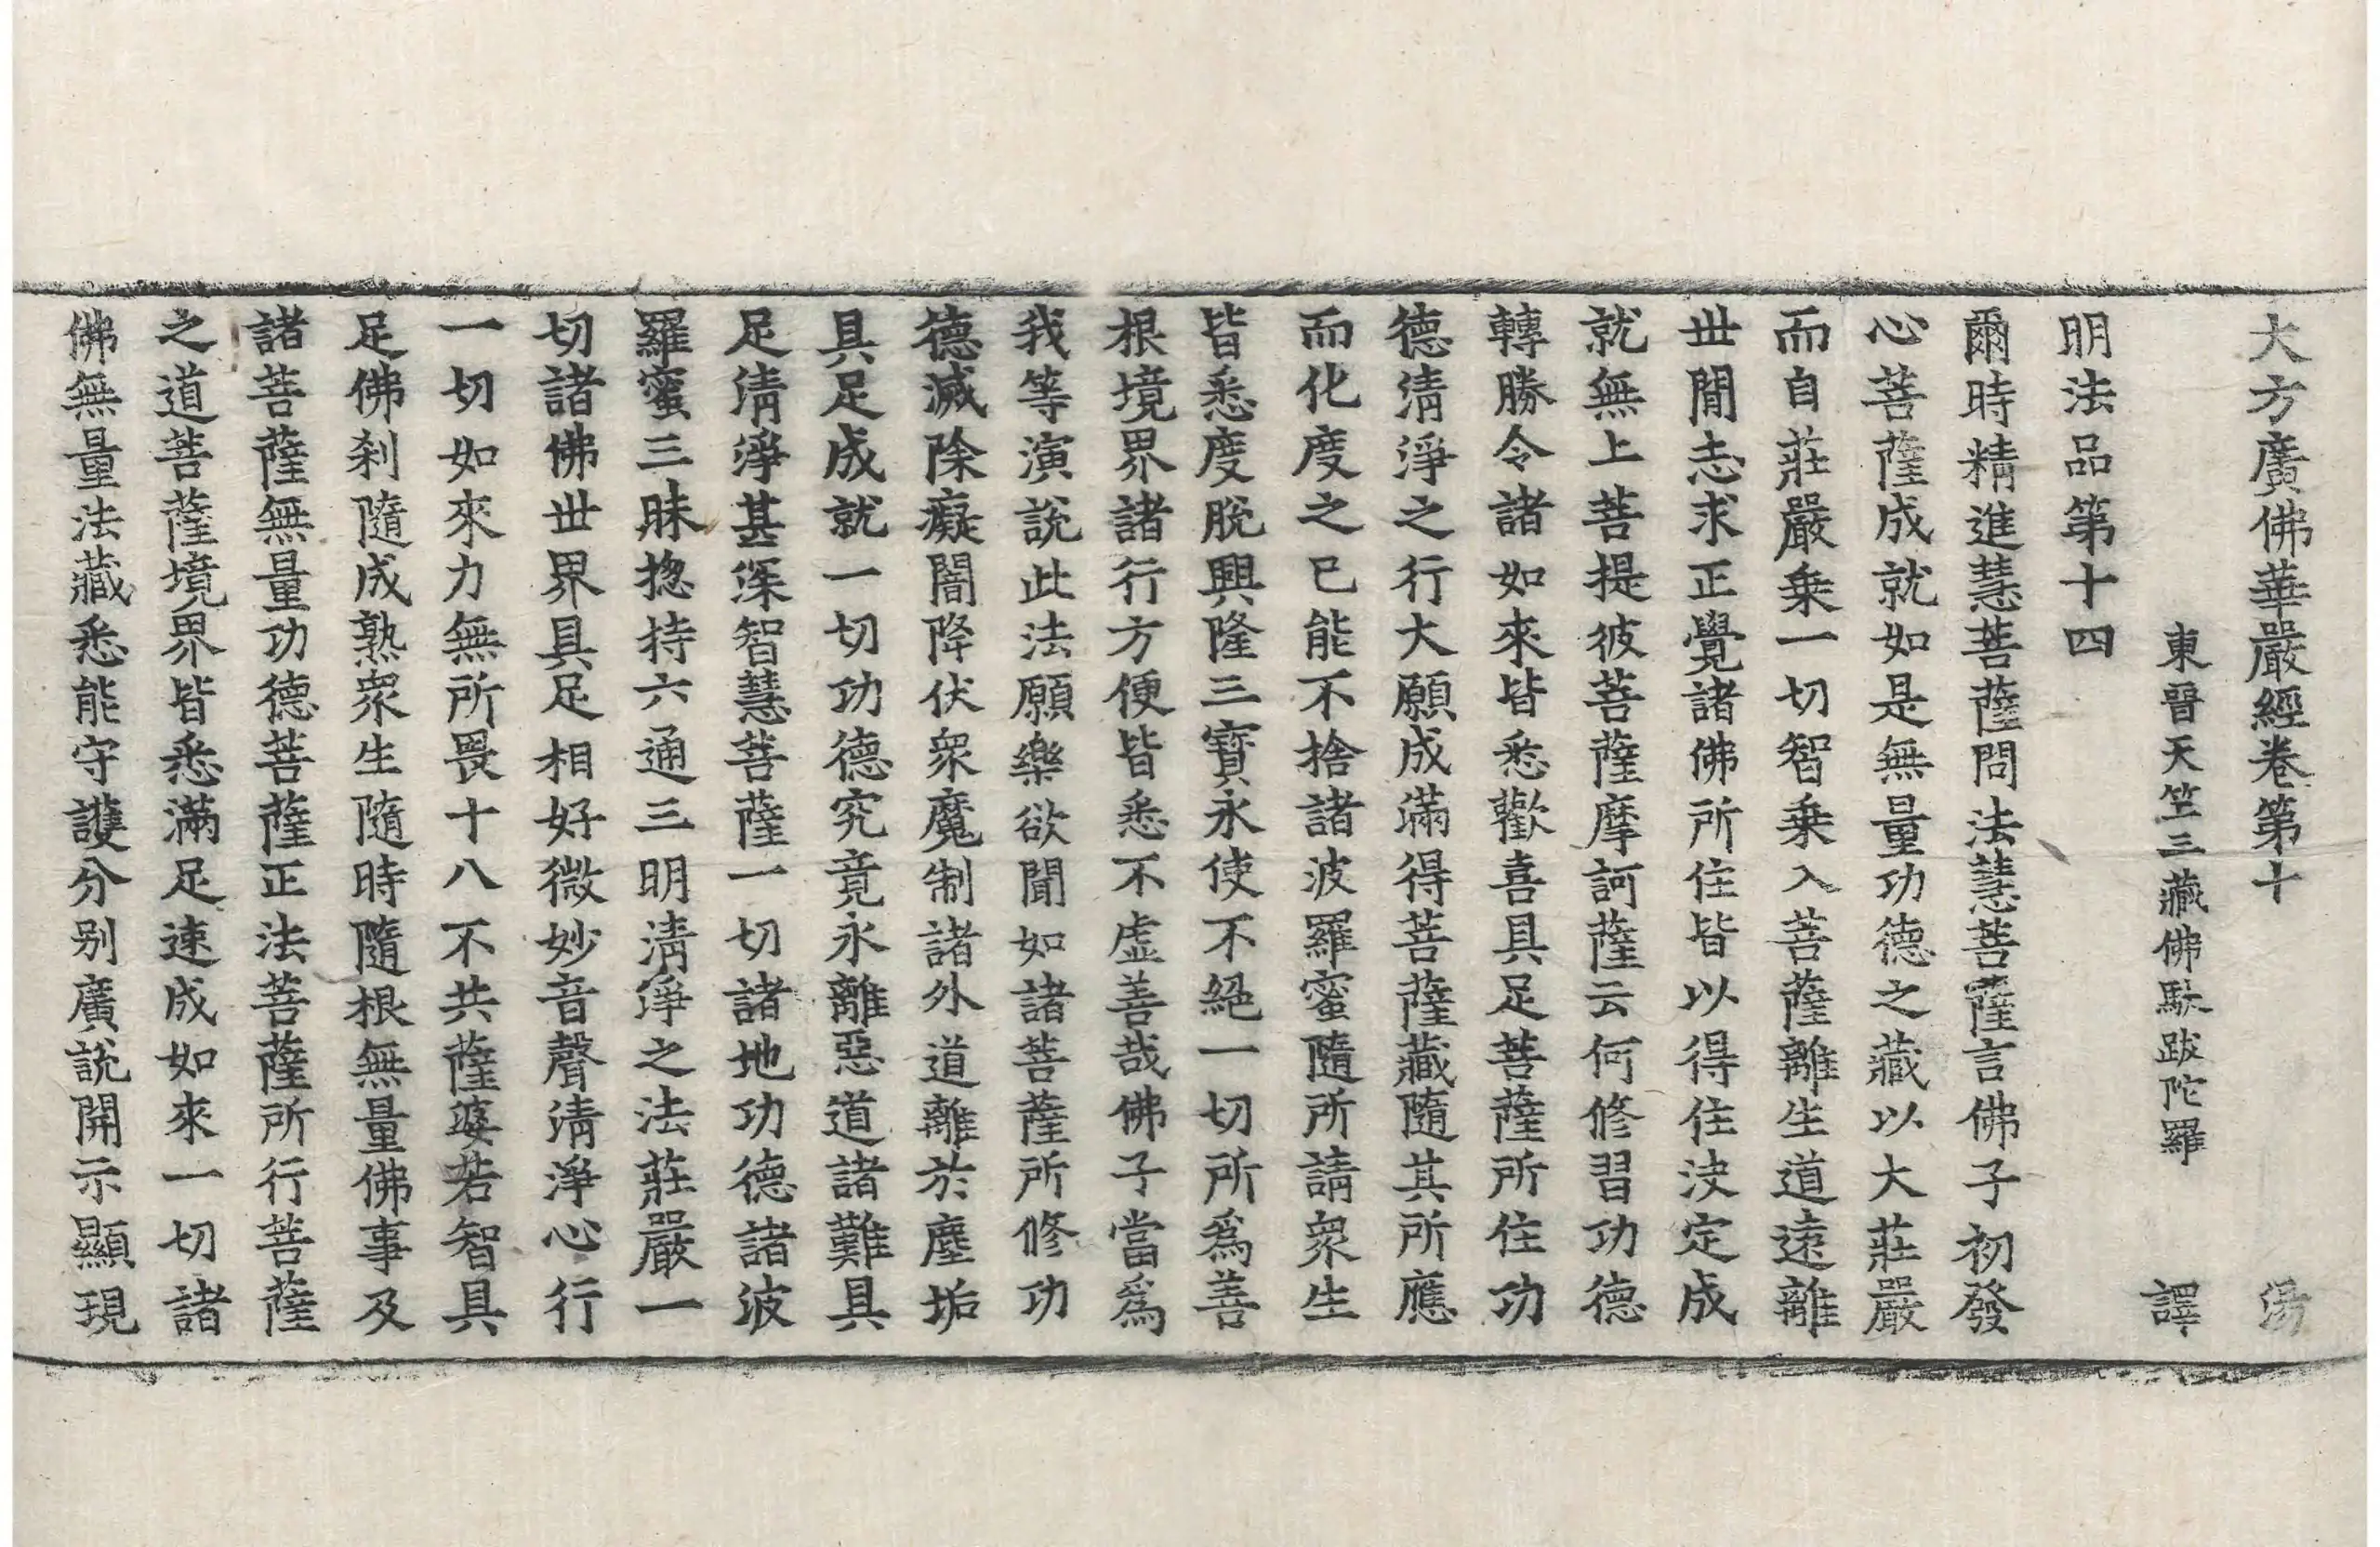 大方廣佛華嚴經卷第十 湯
東晉天竺三藏佛馱跋陀羅 譯
明法品第十四
爾時精進慧菩薩問法慧菩薩言佛子初發
心菩薩成就如是無量功德之藏以大莊嚴
而自莊嚴乗一切智乗入菩薩離生道遠離
世閒志求正覺諸佛所住皆以得住決定成
就無上菩提彼菩薩摩訶薩云何修習功德
轉勝令諸如來皆悉歡喜具足菩薩所住功
德淸淨之行大願成滿得菩薩藏隨其所應
而化度之已能不捨諸波羅蜜隨所請衆生
皆悉度脫興隆三寶永使不絕一切所爲善
根境界諸行方便皆悉不虛善哉佛子當爲
我等演說此法願樂欲聞如諸菩薩所修功
德滅除癡闇降伏衆魔制諸外道離於塵垢
具足成就一切功德究竟永離惡道諸難具
足淸淨甚深智慧菩薩一切諸地功德諸波
羅蜜三昧揔持六通三明淸淨之法莊嚴一
切諸佛世界具足相好微妙音聲淸淨心行
一切如來力無所畏十八不共薩婆若智具
足佛刹隨成熟衆生隨時隨根無量佛事及
諸菩薩無量功德菩薩正法菩薩所行菩薩
之道菩薩境界皆悉滿足速成如來一切諸
佛無量法藏悉能守護分別廣說開示顯現